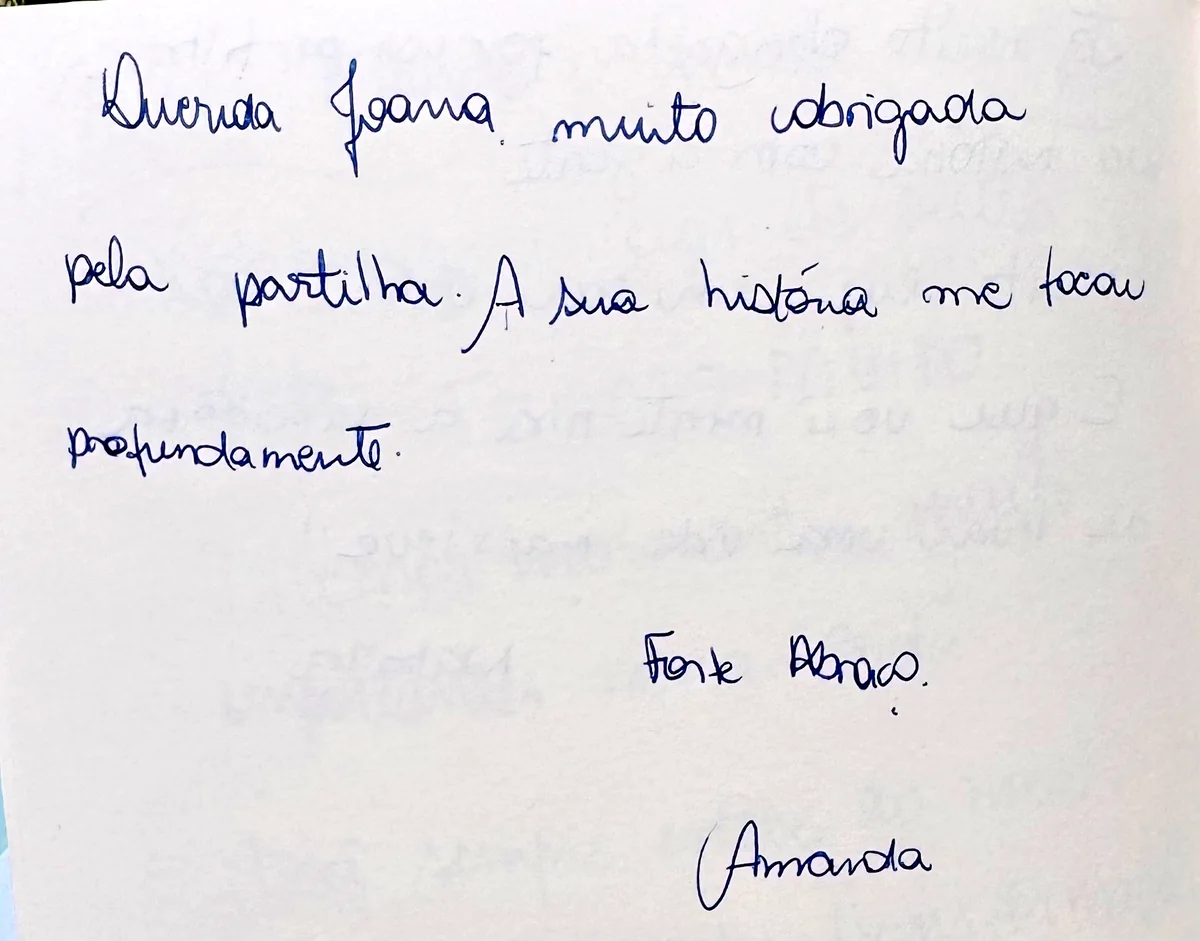 Querida Joana, muito obrigada
pela partilha. A sua história me tocou
profundamente.
Forte Abraço.
Amanda